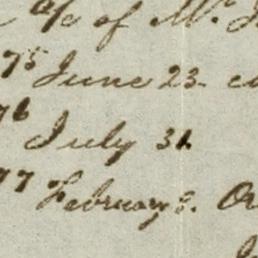 a/c of Mr.
75 June 23.
76 July 31.
77 February 8.